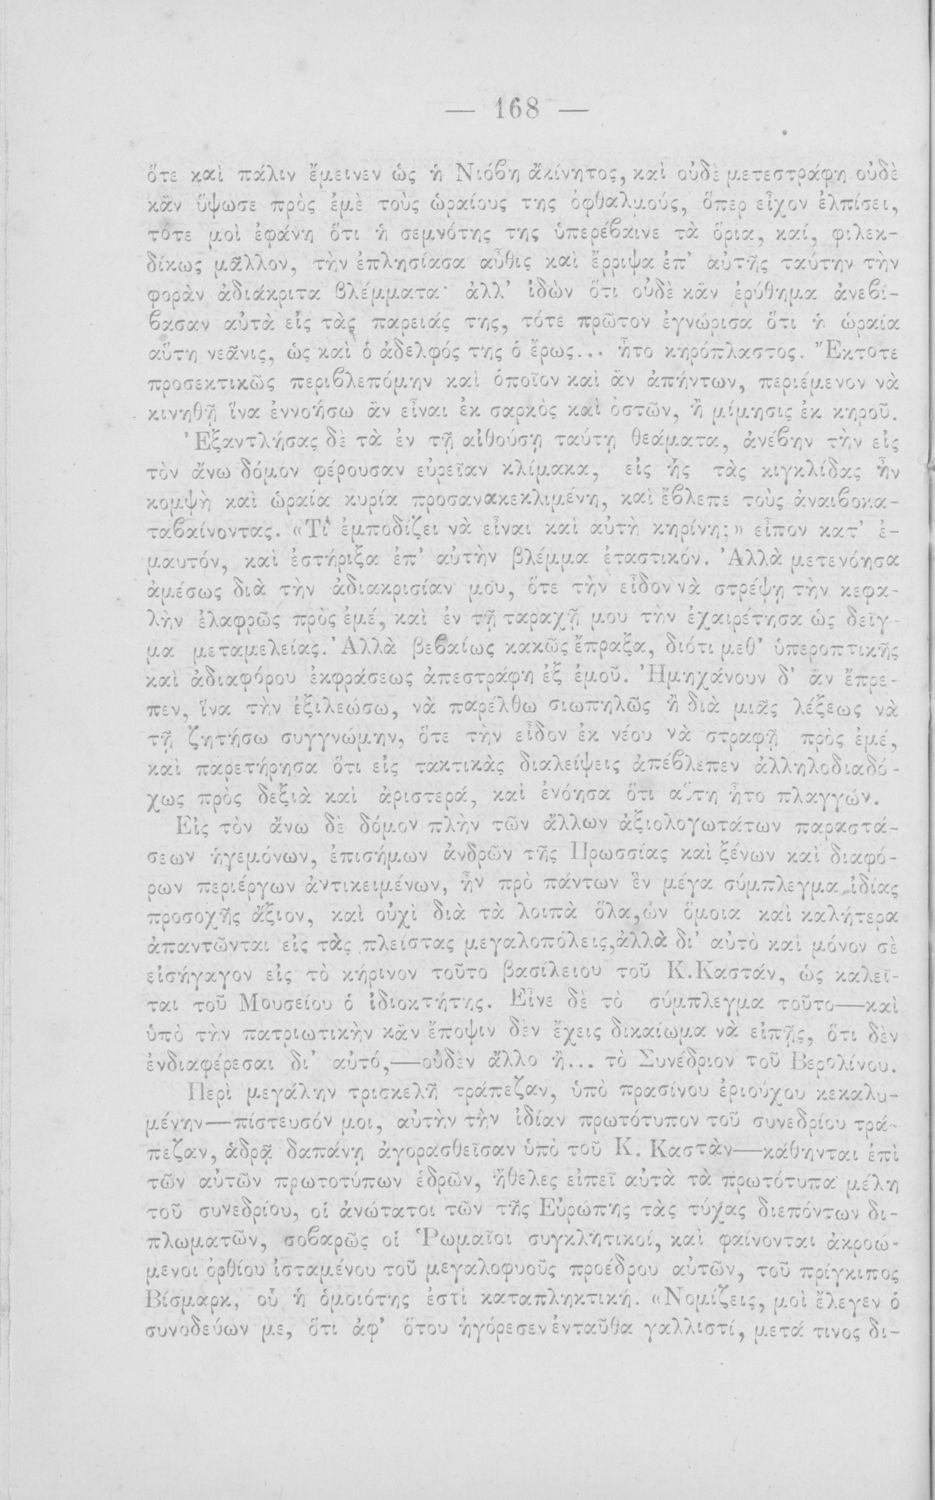 — 168 —
ὅτε καὶ πάλιν ἔμεινεν ὡς ἡ Νιόβη ἀκίνητος, καὶ οὐδὲ μετεστράφη οὐδὲ
κἂν ὕψωσε πρὸς ἐμὲ τοὺς ὡραίους της ὀφθαλμούς, ὅπερ εἶχον ἐλπίσει,
τότε μοὶ ἐφάνη ὅτι ἡ σεμνότης της ὑπερέβαινε τὰ ὅρια, καί, φιλεκ-
δίκως μᾶλλον, τὴν ἐπλησίασα αὖθις καὶ ἔρριψα ἐπ’ αὐτῆς ταύτην τὴν
φορὰν ἀδιάκριτα βλέμματα· ἀλλ’ ἰδὼν ὅτι οὐδὲ κἂν ἐρύθημα ἀνεβί-
βασαν αὐτὰ εἰς τὰς παρειάς της, τότε πρῶτον ἐγνώρισα ὅτι ἡ ὡραία
αὕτη νεᾶνις, ὡς καὶ ὁ ἀδελφός της ὁ ἔρως... ἦτο κηρόπλαστος. Ἔκτοτε
προσεκτικῶς περιβλεπόμην καὶ ὁποῖον καὶ ἂν ἀπήντων, περιέμενον νὰ
κινηθῇ ἵνα ἐννοήσω ἂν εἶναι ἐκ σαρκὸς καὶ ὀστῶν, ἢ μίμησις ἐκ κηροῦ.
Ἐξαντλήσας δὲ τὰ ἐν τῇ αἰθούσῃ ταύτῃ θεάματα, ἀνέβην τὴν εἰς
τὸν ἄνω δόμον φέρουσαν εὐρεῖαν κλίμακα, εἰς ἧς τὰς κιγκλίδας ἦν
κομψὴ καὶ ὡραία κυρία προσανακεκλιμένη, καὶ ἔβλεπε τοὺς ἀναιβοκα-
ταβαίνοντας. «Τί ἐμποδίζει νὰ εἶναι καὶ αὐτὴ κηρίνη;» εἶπον κατ’ ἐ-
μαυτόν, καὶ ἐστήριξα ἐπ’ αὐτὴν βλέμμα ἐταστικόν. Ἀλλὰ μετενόησα
ἀμέσως διὰ τὴν ἀδιακρισίαν μου, ὅτε τὴν εἶδον νὰ στρέψῃ τὴν κεφα-
λὴν ἐλαφρῶς πρὸς ἐμέ, καὶ ἐν τῇ ταραχῇ μου τὴν ἐχαιρέτησα ὡς δεῖγ-
μα μεταμελείας. Ἀλλὰ βεβαίως κακῶς ἔπραξα, διότι μεθ’ ὑπεροπτικῆς
καὶ ἀδιαφόρου ἐκφράσεως ἀπεστράφη ἐξ ἐμοῦ. Ἠμηχάνουν δ’ ἂν ἔπρε-
πεν, ἵνα τὴν ἐξιλεώσω, νὰ παρέλθω σιωπηλῶς ἢ διὰ μιᾶς λέξεως νὰ
τῇ ζητήσω συγγνώμην, ὅτε τὴν εἶδον ἐκ νέου νὰ στραφῇ πρὸς ἐμέ,
καὶ παρετήρησα ὅτι εἰς τακτικὰς διαλείψεις ἀπέβλεπεν ἀλληλοδιαδό-
χως πρὸς δεξιὰ καὶ ἀριστερά, καὶ ἐνόησα ὅτι αὕτη ἦτο πλαγγών.
Εἰς τὸν ἄνω δὲ δόμον πλὴν τῶν ἄλλων ἀξιολογωτάτων παραστά-
σεων ἡγεμόνων, ἐπισήμων ἀνδρῶν τῆς Πρωσσίας καὶ ξένων καὶ διαφό-
ρων περιέργων ἀντικειμένων, ἦν πρὸ πάντων ἓν μέγα σύμπλεγμα ἰδίας
προσοχῆς ἄξιον, καὶ οὐχὶ διὰ τὰ λοιπὰ ὅλα, ὧν ὅμοια καὶ καλήτερα
ἀπαντῶνται εἰς τὰς πλείστας μεγαλοπόλεις, ἀλλὰ δι’ αὐτὸ καὶ μόνον σὲ
εἰσήγαγον εἰς τὸ κήρινον τοῦτο βασίλειον τοῦ Κ. Καστάν, ὡς καλεῖ-
ται τοῦ Μουσείου ὁ ἰδιοκτήτης. Εἶνε δὲ τὸ σύμπλεγμα τοῦτο—καὶ
ὑπὸ τὴν πατριωτικὴν κἂν ἔποψιν δὲν ἔχεις δικαίωμα νὰ εἰπῇς, ὅτι δὲν
ἐνδιαφέρεσαι δι’ αὐτό,—οὐδὲν ἄλλο ἢ... τὸ Συνέδριον τοῦ Βερολίνου.
Περὶ μεγάλην τρισκελῆ τράπεζαν, ὑπὸ πρασίνου ἐριούχου κεκαλυ-
μένην—πίστευσόν μοι, αὐτὴν τὴν ἰδίαν πρωτότυπον τοῦ συνεδρίου τρά-
πεζαν, ἁδρᾷ δαπάνῃ ἀγορασθεῖσαν ὑπὸ τοῦ Κ. Καστὰν—κάθηνται ἐπὶ
τῶν αὐτῶν πρωτοτύπων ἑδρῶν, ἤθελες εἰπεῖ αὐτὰ τὰ πρωτότυπα μέλη
τοῦ συνεδρίου, οἱ ἀνώτατοι τῶν τῆς Εὐρώπης τὰς τύχας διεπόντων δι-
πλωματῶν, σοβαρῶς οἱ Ῥωμαῖοι συγκλητικοί, καὶ φαίνονται ἀκροώ-
μενοι ὀρθίου ἱσταμένου τοῦ μεγαλοφυοῦς προέδρου αὐτῶν, τοῦ πρίγκιπος
Βίσμαρκ, οὗ ἡ ὁμοιότης ἐστὶ καταπληκτική. «Νομίζεις, μοὶ ἔλεγεν ὁ
συνοδεύων με, ὅτι ἀφ’ ὅτου ἠγόρεσεν ἐνταῦθα γαλλιστί, μετά τινος δι-